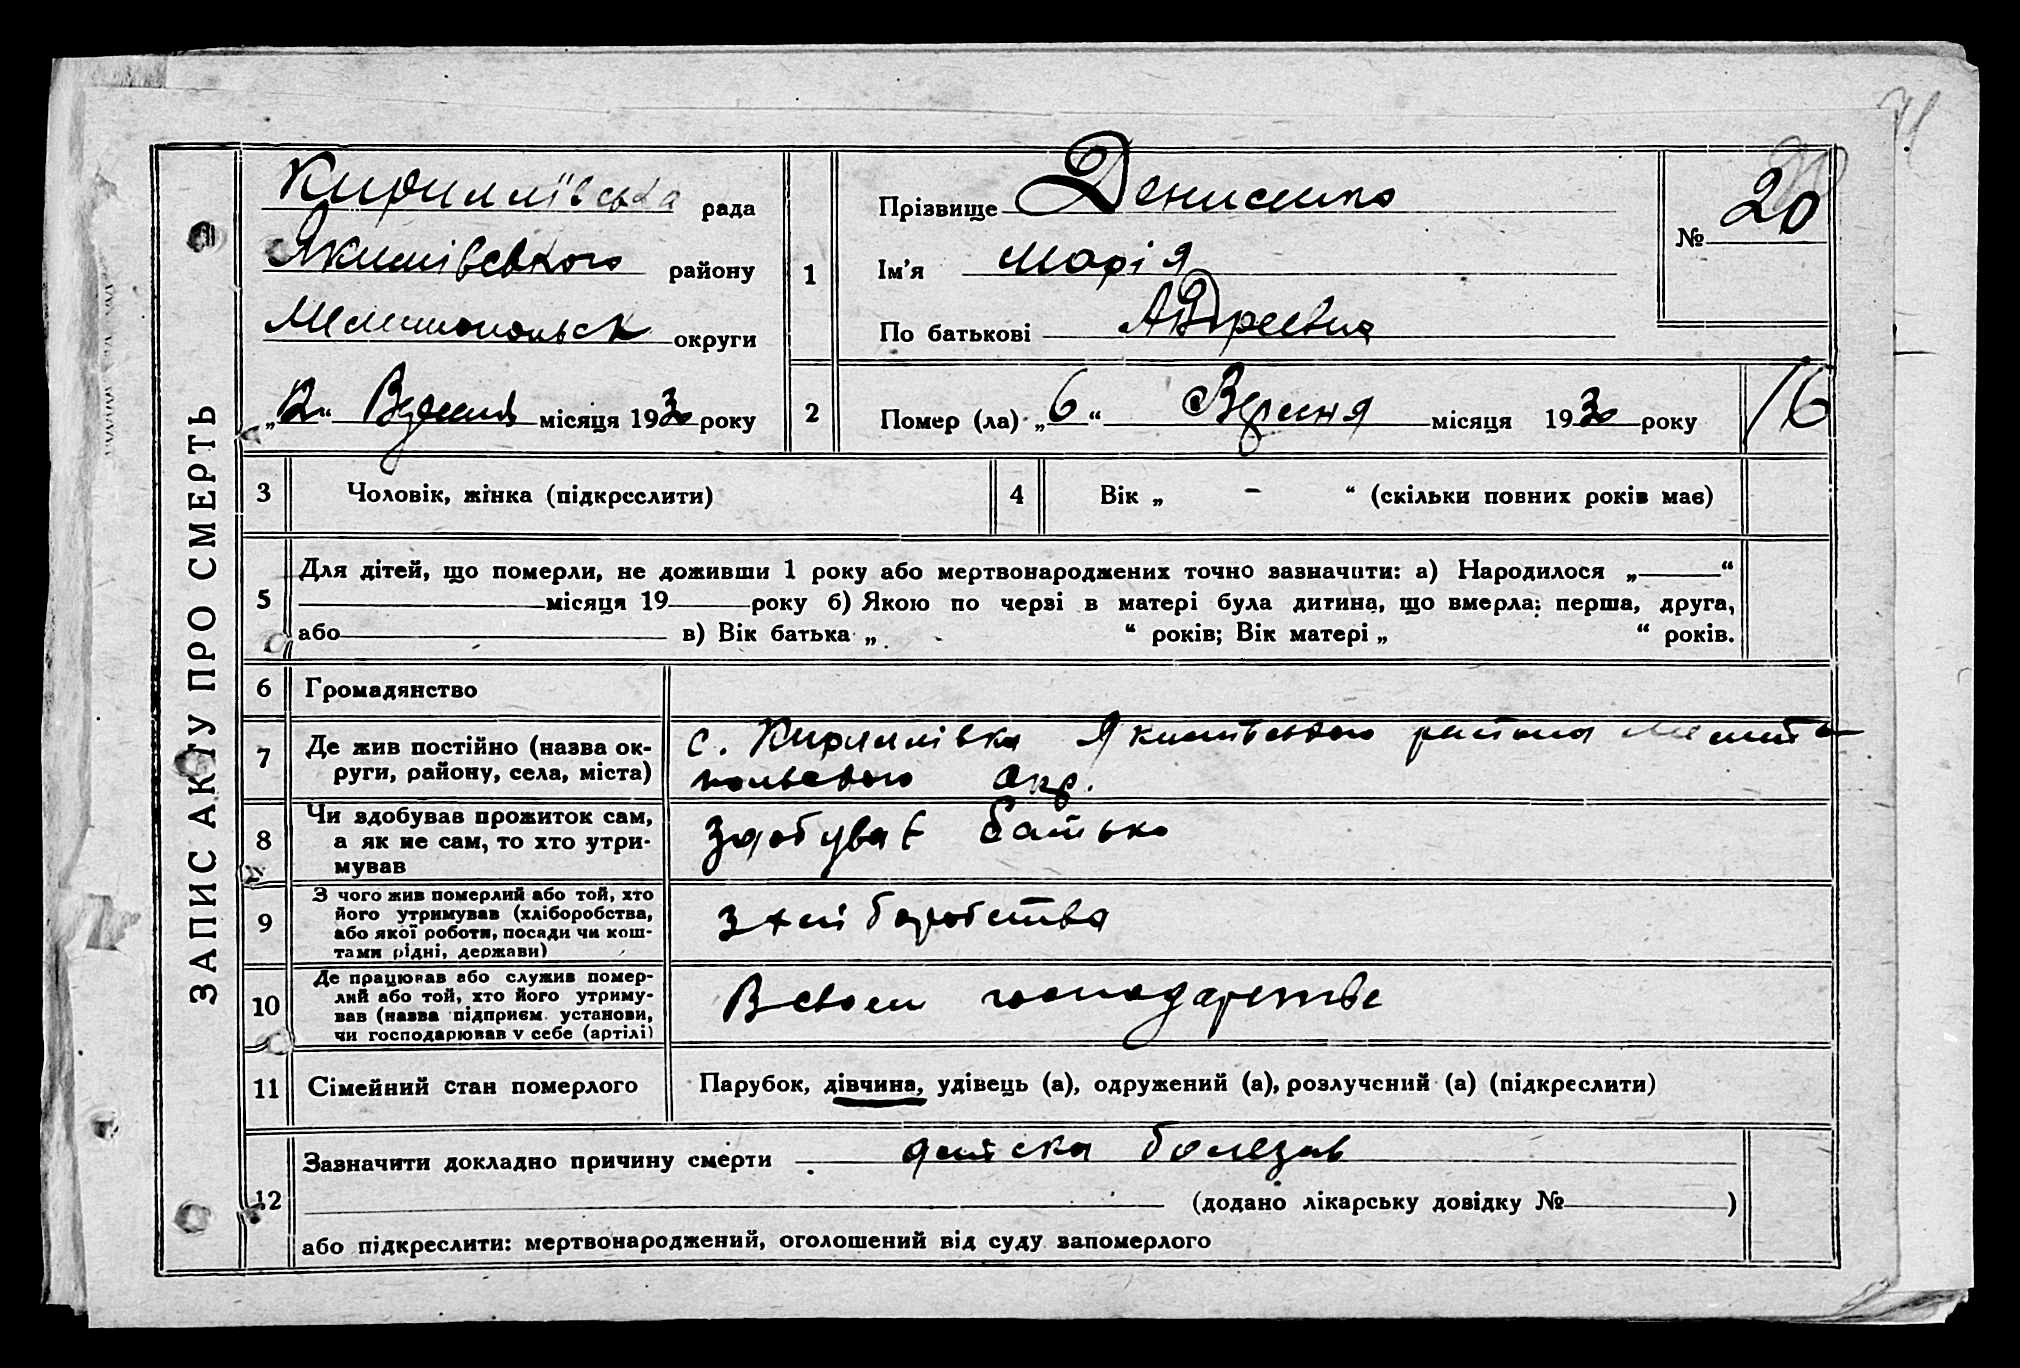 ЗАПИС АКТУ ПРО СМЕРТЬ
Кириллівська рада
Якимівського району
Мелитопольськ округи
„12“ Вересня місяця 1930 року
1
Прізвище Денисенко
Ім'я Марія
По батькові Андреевна
№ 20
2
Помер (ла) „6“ Вересня місяця 1930 року
16
3 Чоловік, жінка (підкреслити)
4 Вік „ - “ (скільки повних років має)
5
Для дітей, що померли, не доживши 1 року або мертвонароджених точно зазначити: а) Народилося „ “
місяця 19 року б) Якою по черзі в матері була дитина, що вмерла: перша, друга,
або в) Вік батька „ “ років; Вік матері „ “ років.
6 Громадянство
7 Де жив постійно (назва ок-
руги, району, села, міста)
с. Кирилівка Якимівського района Мелито
польского окр.
8 Чи здобував прожиток сам,
а як не сам, то хто утри-
мував
Здобуває батько
9 З чого жив померлий або той, хто
його утримував (хліборобства,
або якої роботи, посади чи кош-
тами рідні, держави)
З хліборобства
10 Де працював або служив помер-
лий або той, хто його утриму-
вав (назва підприєм. установи,
чи господарював у себе (артілі)
В своем господарстве
11 Сімейний стан померлого
Парубок, дівчина, удівець (а), одружений (а), розлучений (а) (підкреслити)
12
Зазначити докладно причину смерти детска болезнь
(додано лікарську довідку № )
або підкреслити: мертвонароджений, оголошений від суду запомерлого